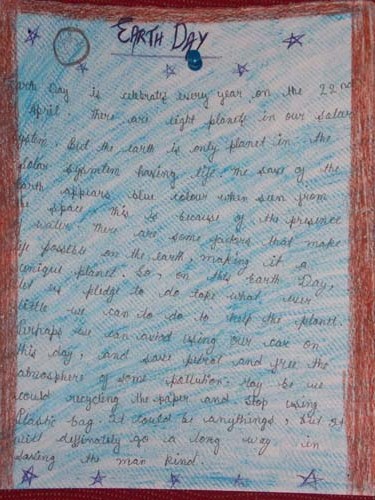 EARTH DAY
Earth Day is celebrates every year on the 22nd
April. There are eight planets in our solar
system, But the earth is only planet in the
solar systmtem having life. The sase of the
Earth appears blue colour when seen from
the space this is because of the presence
water. There are some factors that make
life possible on the earth, making it a
unique planet. So, on this Earth Day,
let us pledge to do take what ever
little we can to do to help the planet.
Perhaps we can avoid using our car on
this day, and save petrol and free the
atmosphere of some pollution. May be we
could recycling the paper and stop using
Plastic bag. it could be anythings, but it
will diffinately go a long way in
saving the man kind.